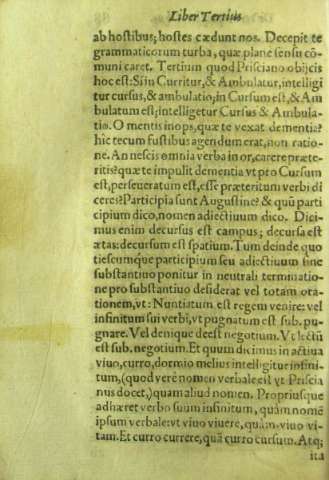 Liber Tertius
ab hostibus; hostes cædunt nos. Decepit te
grammaticorum turba, quæ planè sensu cõ-
muni caret. Tertium quod Prisciano obijcis
hoc est: Si in Curritur, & Ambulatur, intelligi
tur cursus, & ambulatio; in Cursum est, & Am
bulatum est; intelligetur Cursus & Ambula-
tio. O mentis inops, quæ te vexat dementia?
hic tecum fustibus agendum erat, non ratio-
ne. An nescis omnia verba in or, carere præte-
ritis? quæ te impulit dementia vt pro Cursum
est, perseueratum est, esse præteritum verbi di
ceres? Participia sunt Augustine? & quũ parti
cipium dico, nomen adiectiuum dico. Dici-
mus enim decursus est campus; decursa est
ætas: decursum est spatium. Tum deinde quo
tiescumque participium seu adiectiuum sine
substantiuo ponitur in neutrali terminatio-
ne pro substantiuo desiderat vel totam ora-
tionem, vt: Nuntiatum est regem venire: vel
infinitum sui verbi, vt pugnatum est sub. pu-
gnare. Vel denique deest negotium. Vt lectũ
est sub. negotium. Et quum dicimus in actiua
viuo, curro, dormio melius intelligitur infini-
tum, (quod verè nomen verbale est vt Priscia
nus docet,) quam aliud nomen. Propriusque
adhæret verbo suum infinitum, quàm nomẽ
ipsum verbale: vt viuo viuere, quàm viuo vi-
tam. Et curro currere, quã curro cursum. Atq;
ita